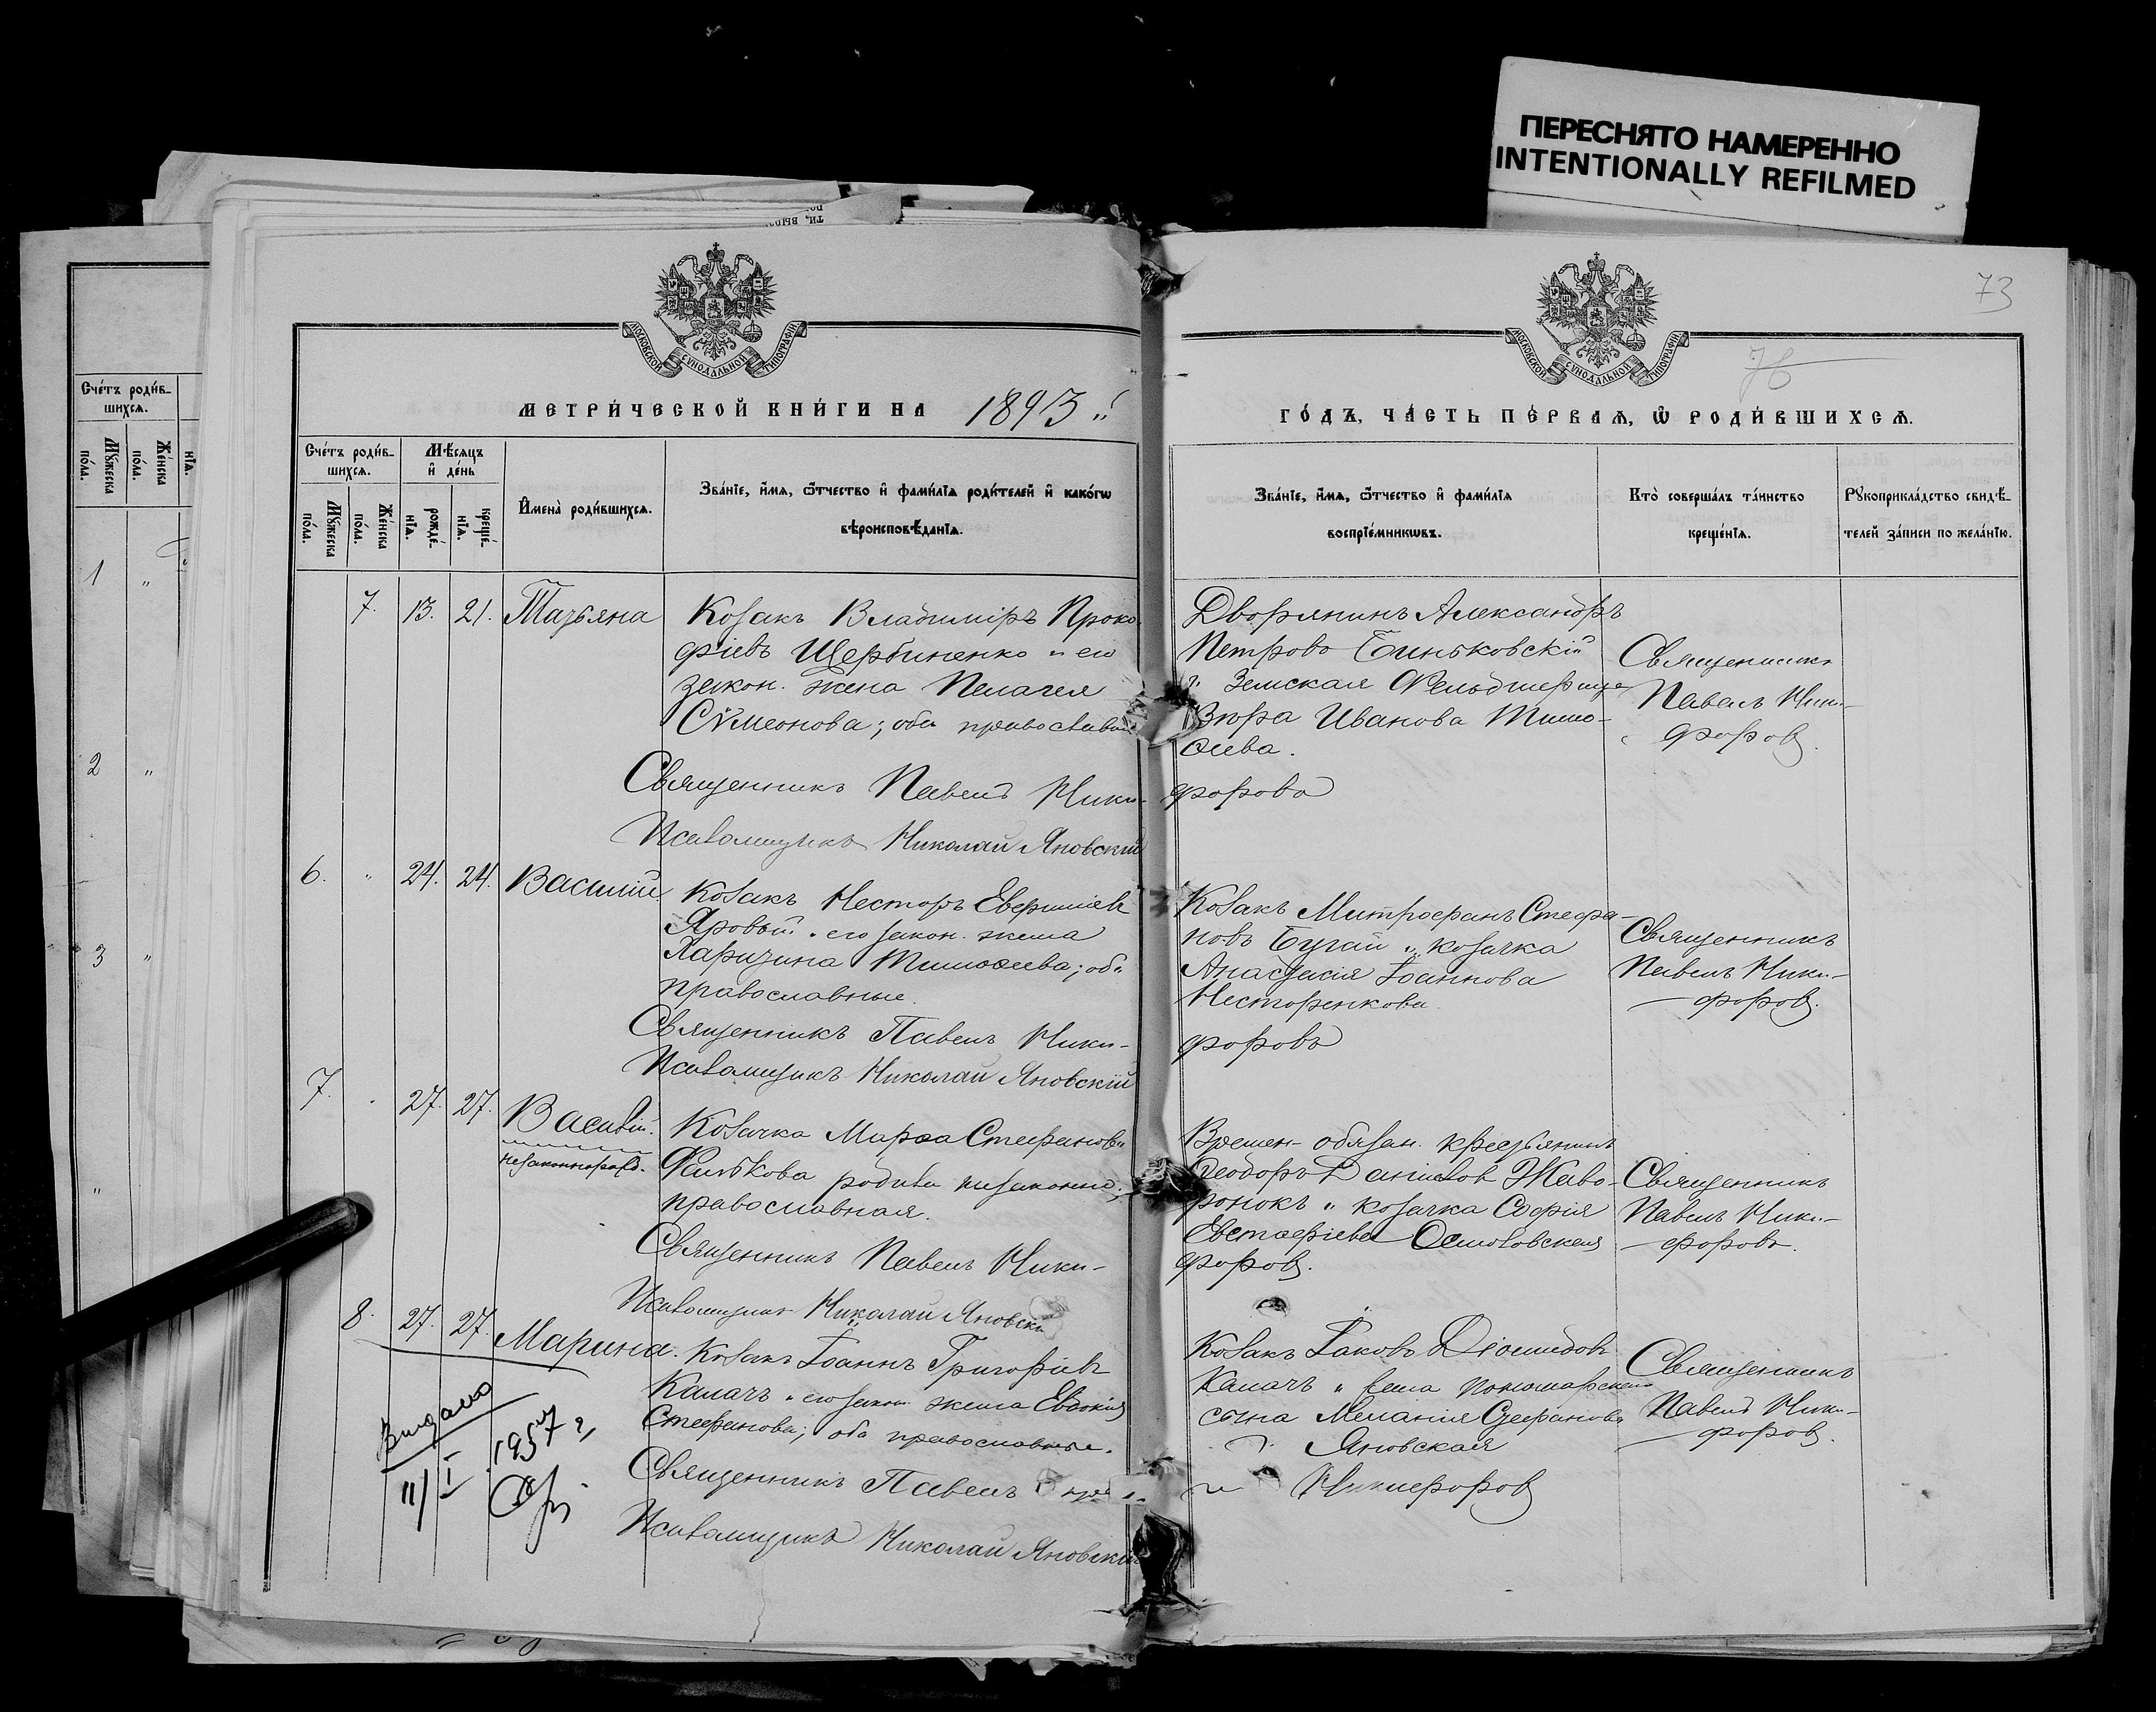 ПЕРЕСНЯТО НАМЕРЕННО
INTENTIONALLY REFILMED
73
МОСКОВСКОЙ СѴНОДАЛЬНОЙ ТИПОГРАФІИ
МОСКОВСКОЙ СѴНОДАЛЬНОЙ ТИПОГРАФІИ
МЕТРИ́ЧЕСКОЙ КНИ́ГИ НА 1893
ГО́ДЪ, ЧА́СТЬ ПЕ́РВАЯ, Ѡ РОДИ́ВШИХСЯ.
Сче́тъ роди́в-
шихся.
Му́жеска
по́ла.
Же́нска
по́ла.
Мѣ́сяцъ
и҆ де́нь
рожде́-
нїя.
креще́-
нїя.
И҆мена̀ роди́вшихся.
Зва́нїе, и҆́мя, ѻ҆́тчество и҆ фами́лїя роди́телей и҆ како́гѡ
вѣроисповѣ́данїя.
Зва́нїе, и҆́мя, ѻ҆́тчество и҆ фами́лїя
воспрїе́мникѡвъ.
Кто̀ соверша́лъ та́инство
креще́нїя.
Рꙋкоприкла́дство свидѣ́-
телей за́писи по жела́нїю.
Сче́тъ роди́в-
шихся.
Му́жеска
по́ла.
Же́нска
по́ла.
нїя.
1 "
2 "
3 "
"
7. 13. 21. Татьяна
Козакъ Владиміръ Проко-
фіевъ Щербиненко и его
закон. жена Пелагея
Сѵмеонова; оба православн
Священникъ Павелъ Ники-
Псаломщикъ Николай Яновскій
Дворянинъ Александръ
Петровъ Биньковскій
и Земская Фельдшерица
Иванова Тимо-
ѳеева.
форовъ
Священникъ
Павелъ Ники-
форовъ.
6. " 24. 24. Василій
Козакъ Несторъ Евфиміевъ
Яровый и его закон. жена
Харитина Тимоѳеева; оба
православные.
Священникъ Павелъ Ники-
Псаломщикъ Николай Яновскій
Козакъ Митрофанъ Стефа-
новъ Бугай и козачка
Анастасія Іоаннова
Несторенкова
форовъ
Священникъ
Павелъ Ники-
форовъ.
7. 27. 27. Василій.
незаконнорожд.
Козачка Марѳа Стефанова
Фалькова родила незаконно;
православная.
Священникъ Павелъ Ники-
Псаломщикъ Николай Яновскій
Времен- обязан. крестьянинъ
Ѳеодоръ Даніиловъ Жаво-
ронокъ и козачка Софія
Евстафіева Осмоловская
форовъ.
Священникъ
Павелъ Ники-
форовъ.
8. 27. 27. Марина.
Козакъ Іоаннъ Григоріевъ
Калачъ и его закон. жена Евдокія
Стефанова; оба православные.
Священникъ Павелъ
Псаломщикъ Николай Яновскій
Козакъ Іаковъ Діомидовъ
Калачъ и жена пономарскаго
сына Меланія Стефанова
Яновская
Никифоровъ
Священникъ
Павелъ Ники-
форовъ.
Видано
11/I 1957 г.